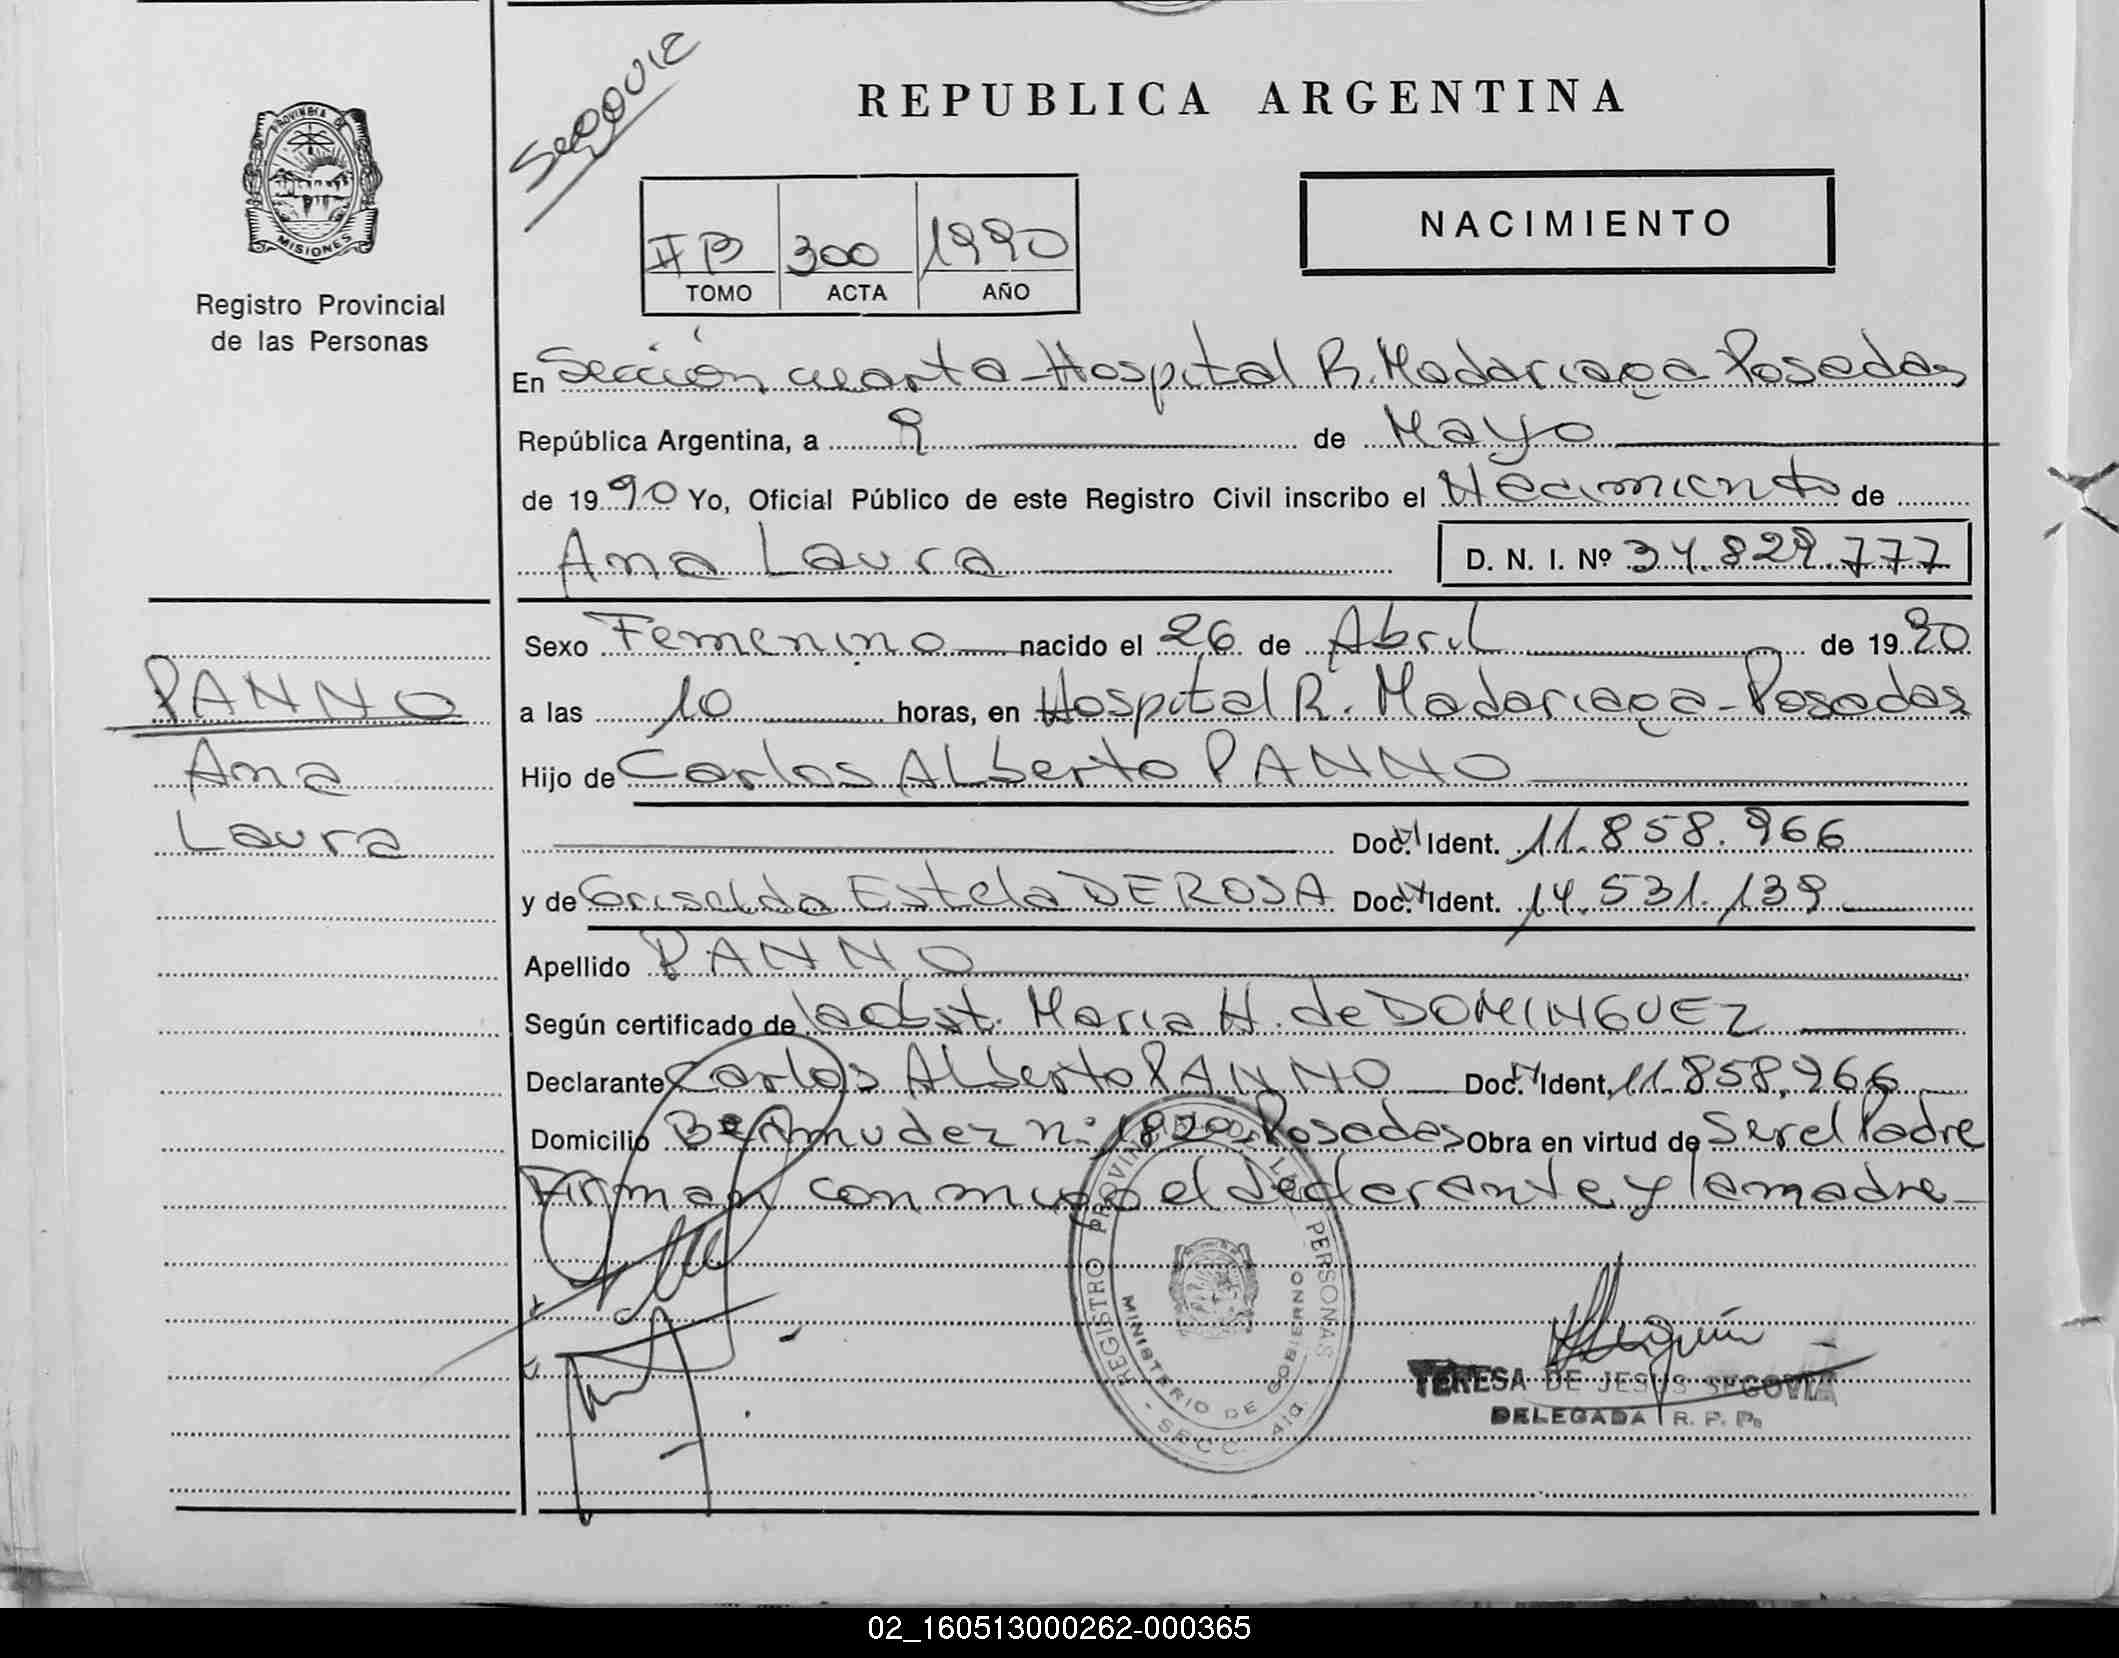 SEGOVIE
REPUBLICA ARGENTINA
PROVINCIA DE
MISIONES
Registro Provincial
de las Personas
NACIMIENTO
II B 300 1990
TOMO ACTA AÑO
En Sección cuarta - Hospital R. Madariaga Posadas
República Argentina, a 9 de Mayo
de 1990 Yo, Oficial Público de este Registro Civil inscribo el Nacimiento de
Ana Laura D. N. I. Nº 34.829.777
Sexo Femenino nacido el 26 de Abril de 1990
a las 10 horas, en Hospital R. Madariaga - Posadas
PANNO
Ana
Laura
Hijo de Carlos Alberto PANNO
Doc. Ident. 11.858.966
y de Griselda Estela DEROSA Doc. Ident. 14.531.139
Apellido PANNO
Según certificado de la obst. Maria H. de DOMINGUEZ
Declarante Carlos Alberto PANNO Doc. Ident. 11.858.966
Domicilio Bermudez n: 1820 Posadas Obra en virtud de Ser el Padre
Firman conmigo el declarante y la madre
REGISTRO PROVINCIAL DE LAS PERSONAS
MINISTERIO DE GOBIERNO
- SECC. 4ta.
TERESA DE JESUS SEGOVIA
DELEGADA R. P. P.
02_160513000262-000365